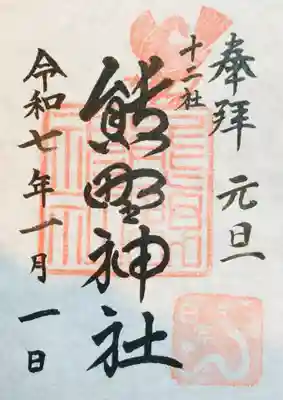 奉拝 元旦
十二社
熊野神社
令和七年一月一日